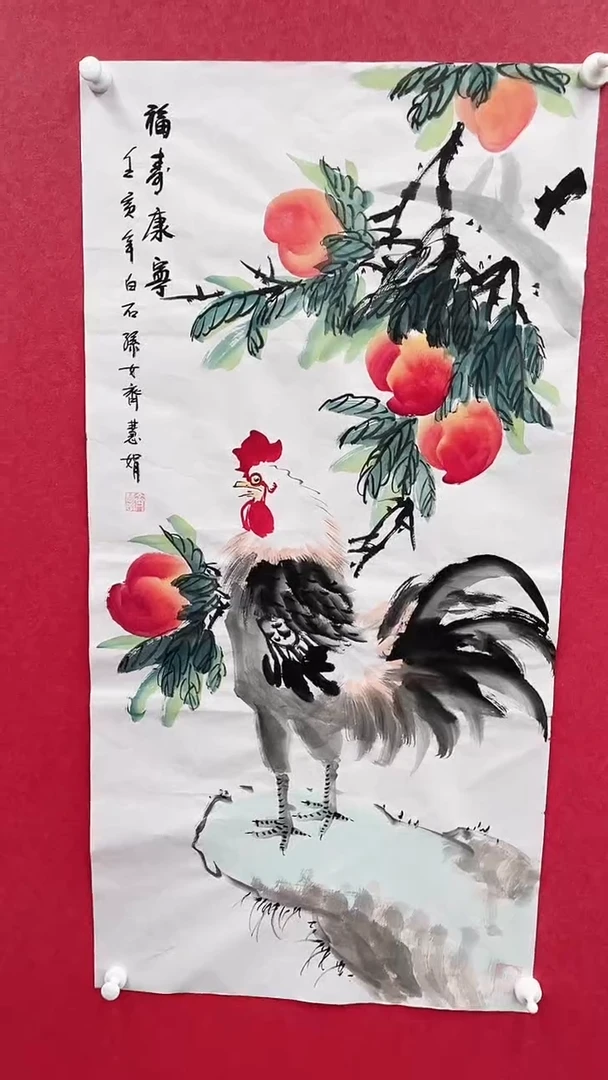 福寿康寧
壬寅年白石孫女齊慧娟